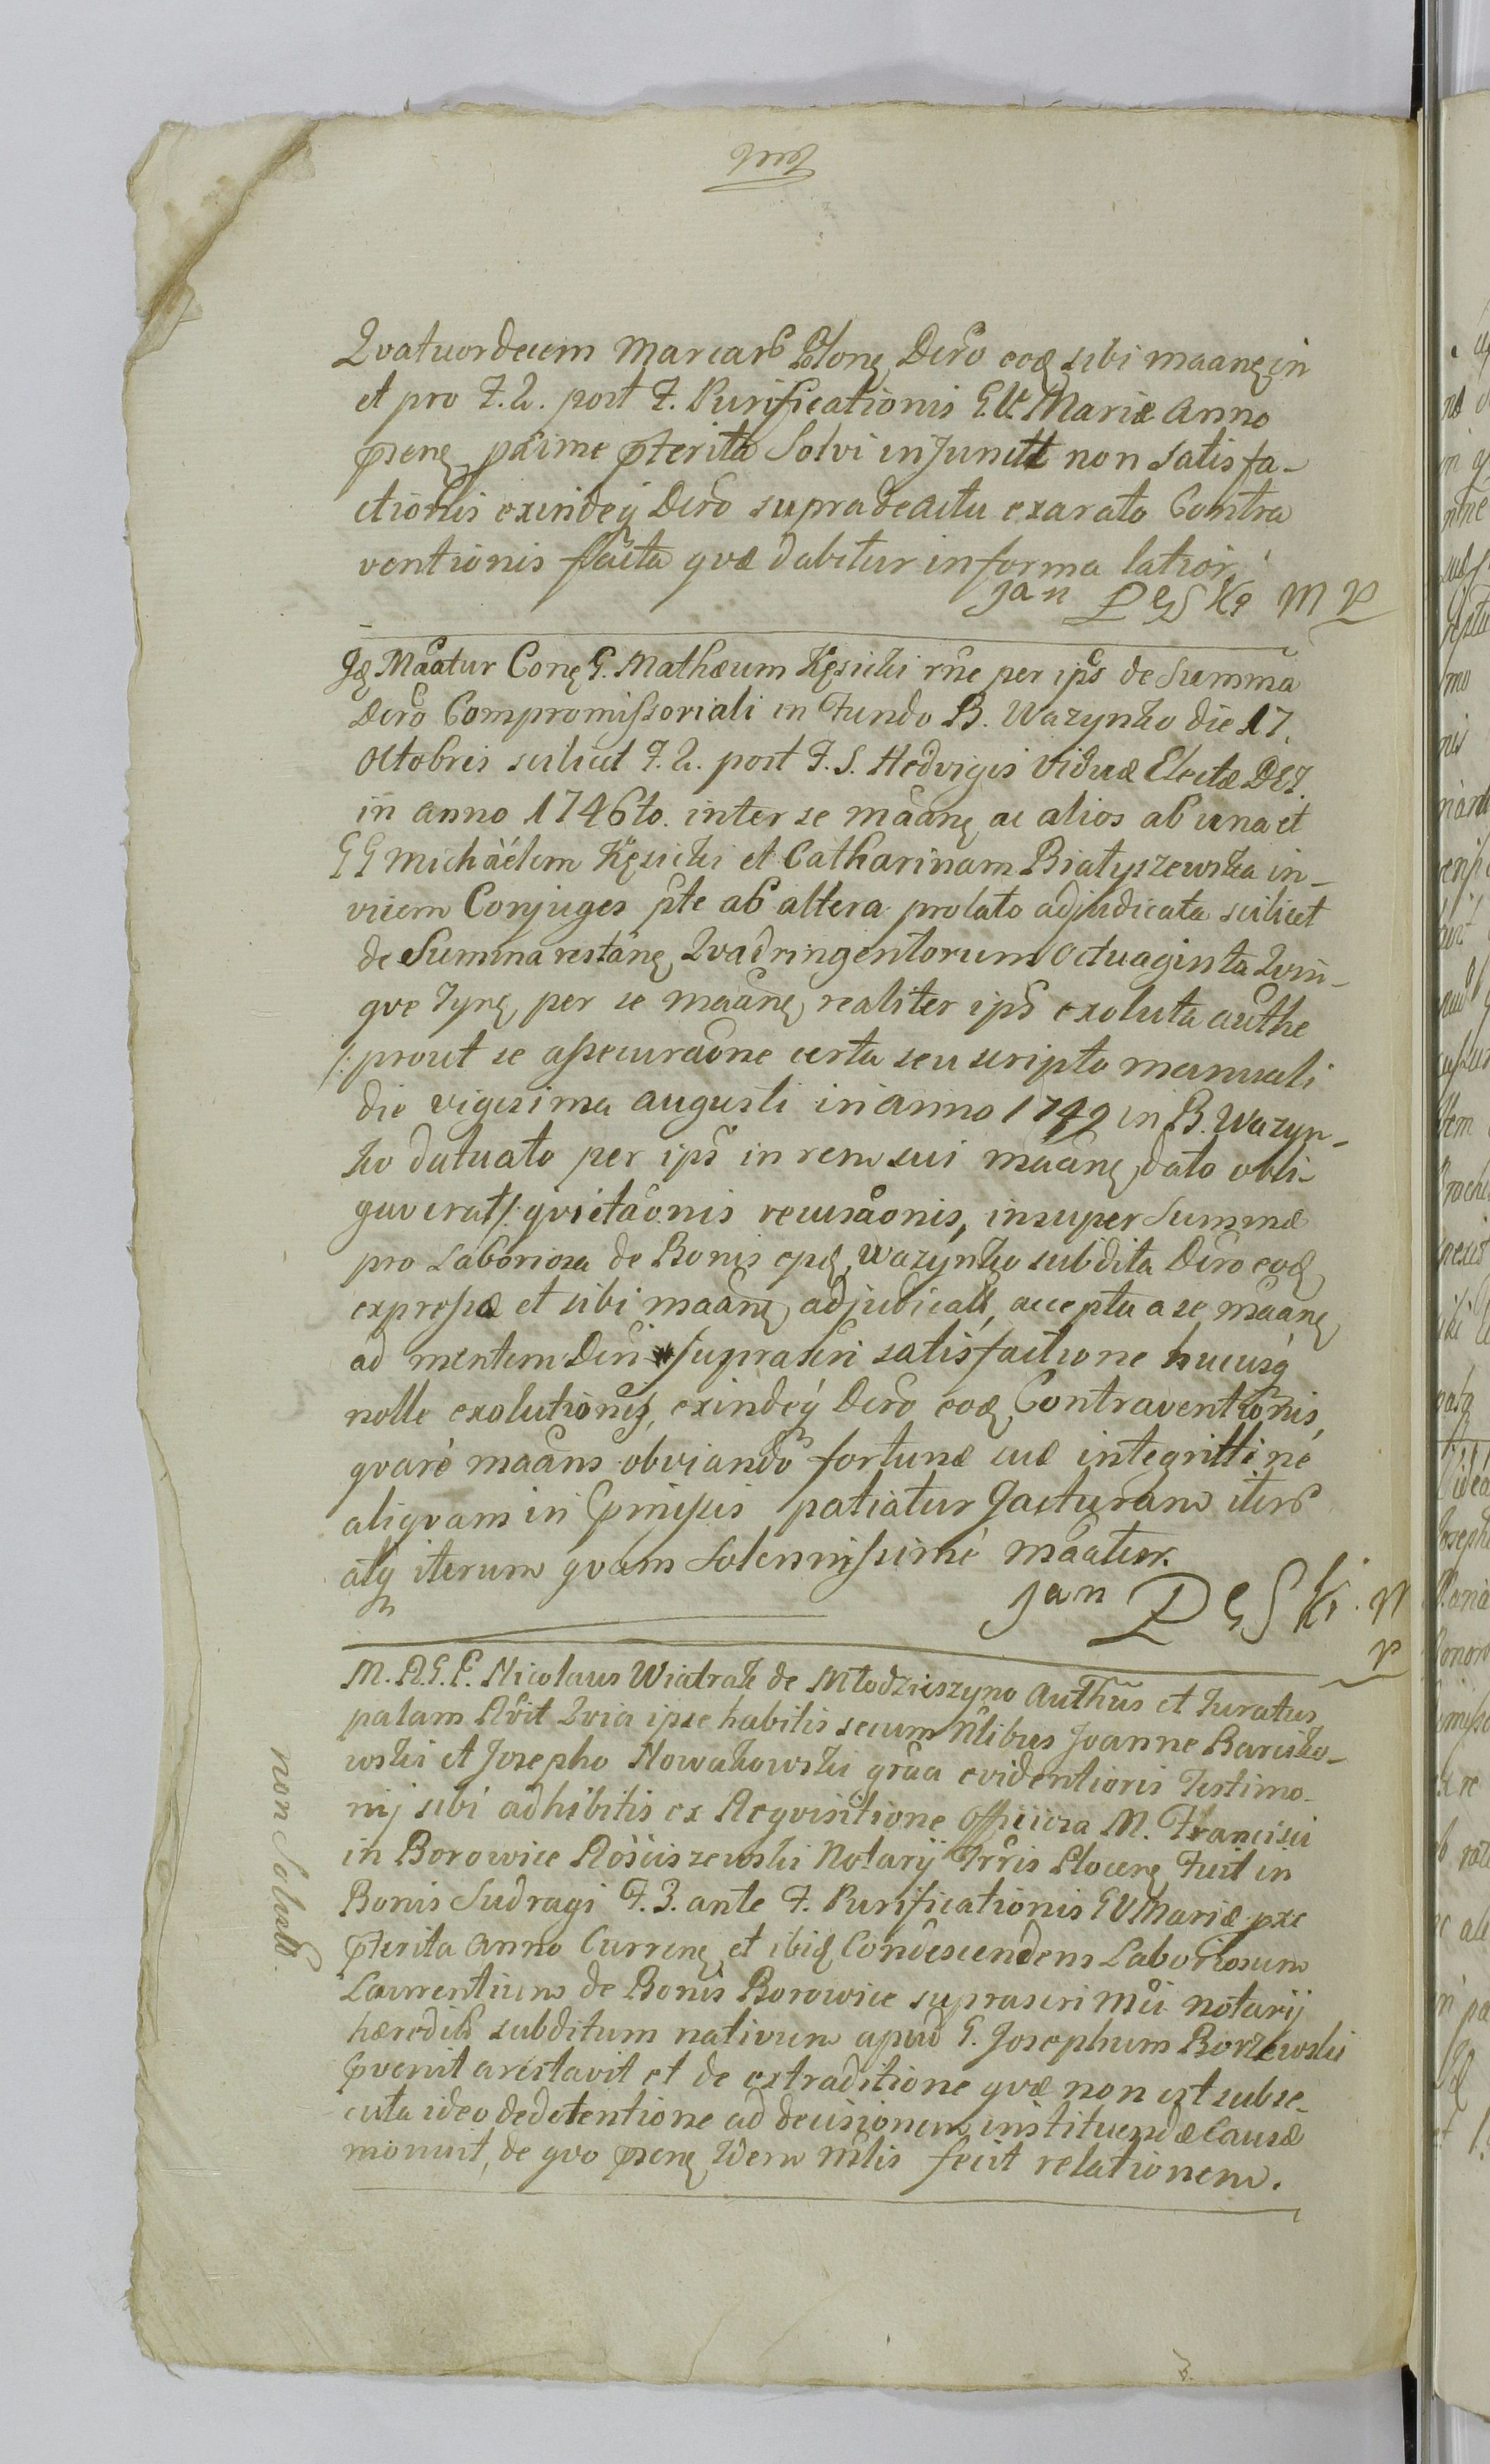 Qvatuordecem Marcarb Polonę Dcro eoq sibi maanę in
et pro F. 2. post F. Purificationis G. V. Mariæ Anno
pseng pxime pterita Solvi injunctt non satisfa-
ctionis exindeq Dcro supradeactu exarato Contra
ventionis facta qvæ dabitur in forma latior.
Jan Pęski mp
Idę Maatur Conę G. Mathæum Kęsicki rne per ips de Summa
Dcro Compromissoriali in Fundo B. Wazynko die 17.
Octobris scilicet F. 2. post F. S. Hedvigis Viduæ Electæ DEI.
in anno 1746to. inter se maanę ac alios ab una et
GG Michàélem Kęsicki et Catharinam Białyszewska in-
vicem Conjuges pte ab altera prolato adjudicata scilicet
de Summa restanę Qvadringentorum Octuaginta Qvin-
qve Tynę per se maanę realiter ips exoluta authe
/: prout se assecuraone certa seu scripto manuali
die vigesima augusti in anno 1749 in B. Wazyn-
ko datuato per ips in rem sui maanę dato obli-
gaverat /: qvietaonis recusaonis, insuper Summæ
pro Laboriosa de Bonis epę Wazynko subdita Dcro eoq
expressæ et sibi maanę adjudicatt, accepta a se maanę
ad mentem Dcri suprascri satisfactione hucusq
nolle exolutionis, exindeq Dcro eoq Contraventionis,
qvarè maans obviando fortunæ suæ integritti nè
aliqvam in pmissis patiatur Jacturam iterb
atq iterum qvam Solennissimè maatur.
Jan Pęski. m
p
M. A. G. F. Nicolaus Wiatrak de Młodzieszyno Authus et Juratus
palam Rvit Qvia ipse habitis secum Nlibus Joanne Barcisko-
wski et Josepho Nowakowski graa evidentioris Testimo-
nij sibi adhibitis ex Reqvisitione Officiosa M. Francisci
in Borowice Rościszewski Notarij Trris Plocenę Fuit in
Bonis Sudragi F. 3. ante F. Purificationis GV Mariæ pxe
pterita Anno Currenę et ibiq Condescendens Laboriosum
Laurentium de Bonis Borowice suprascri Mci Notarij
hæredib subditum nativum apud G. Josephum Borzewski
pvenit arestavit et de extraditione qvæ non est subse-
cuta ideo dedetentione ad decisionem instituendæ Causæ
monuit, de qvo psenę Idem Mlis fecit relationem.
non Solutt.